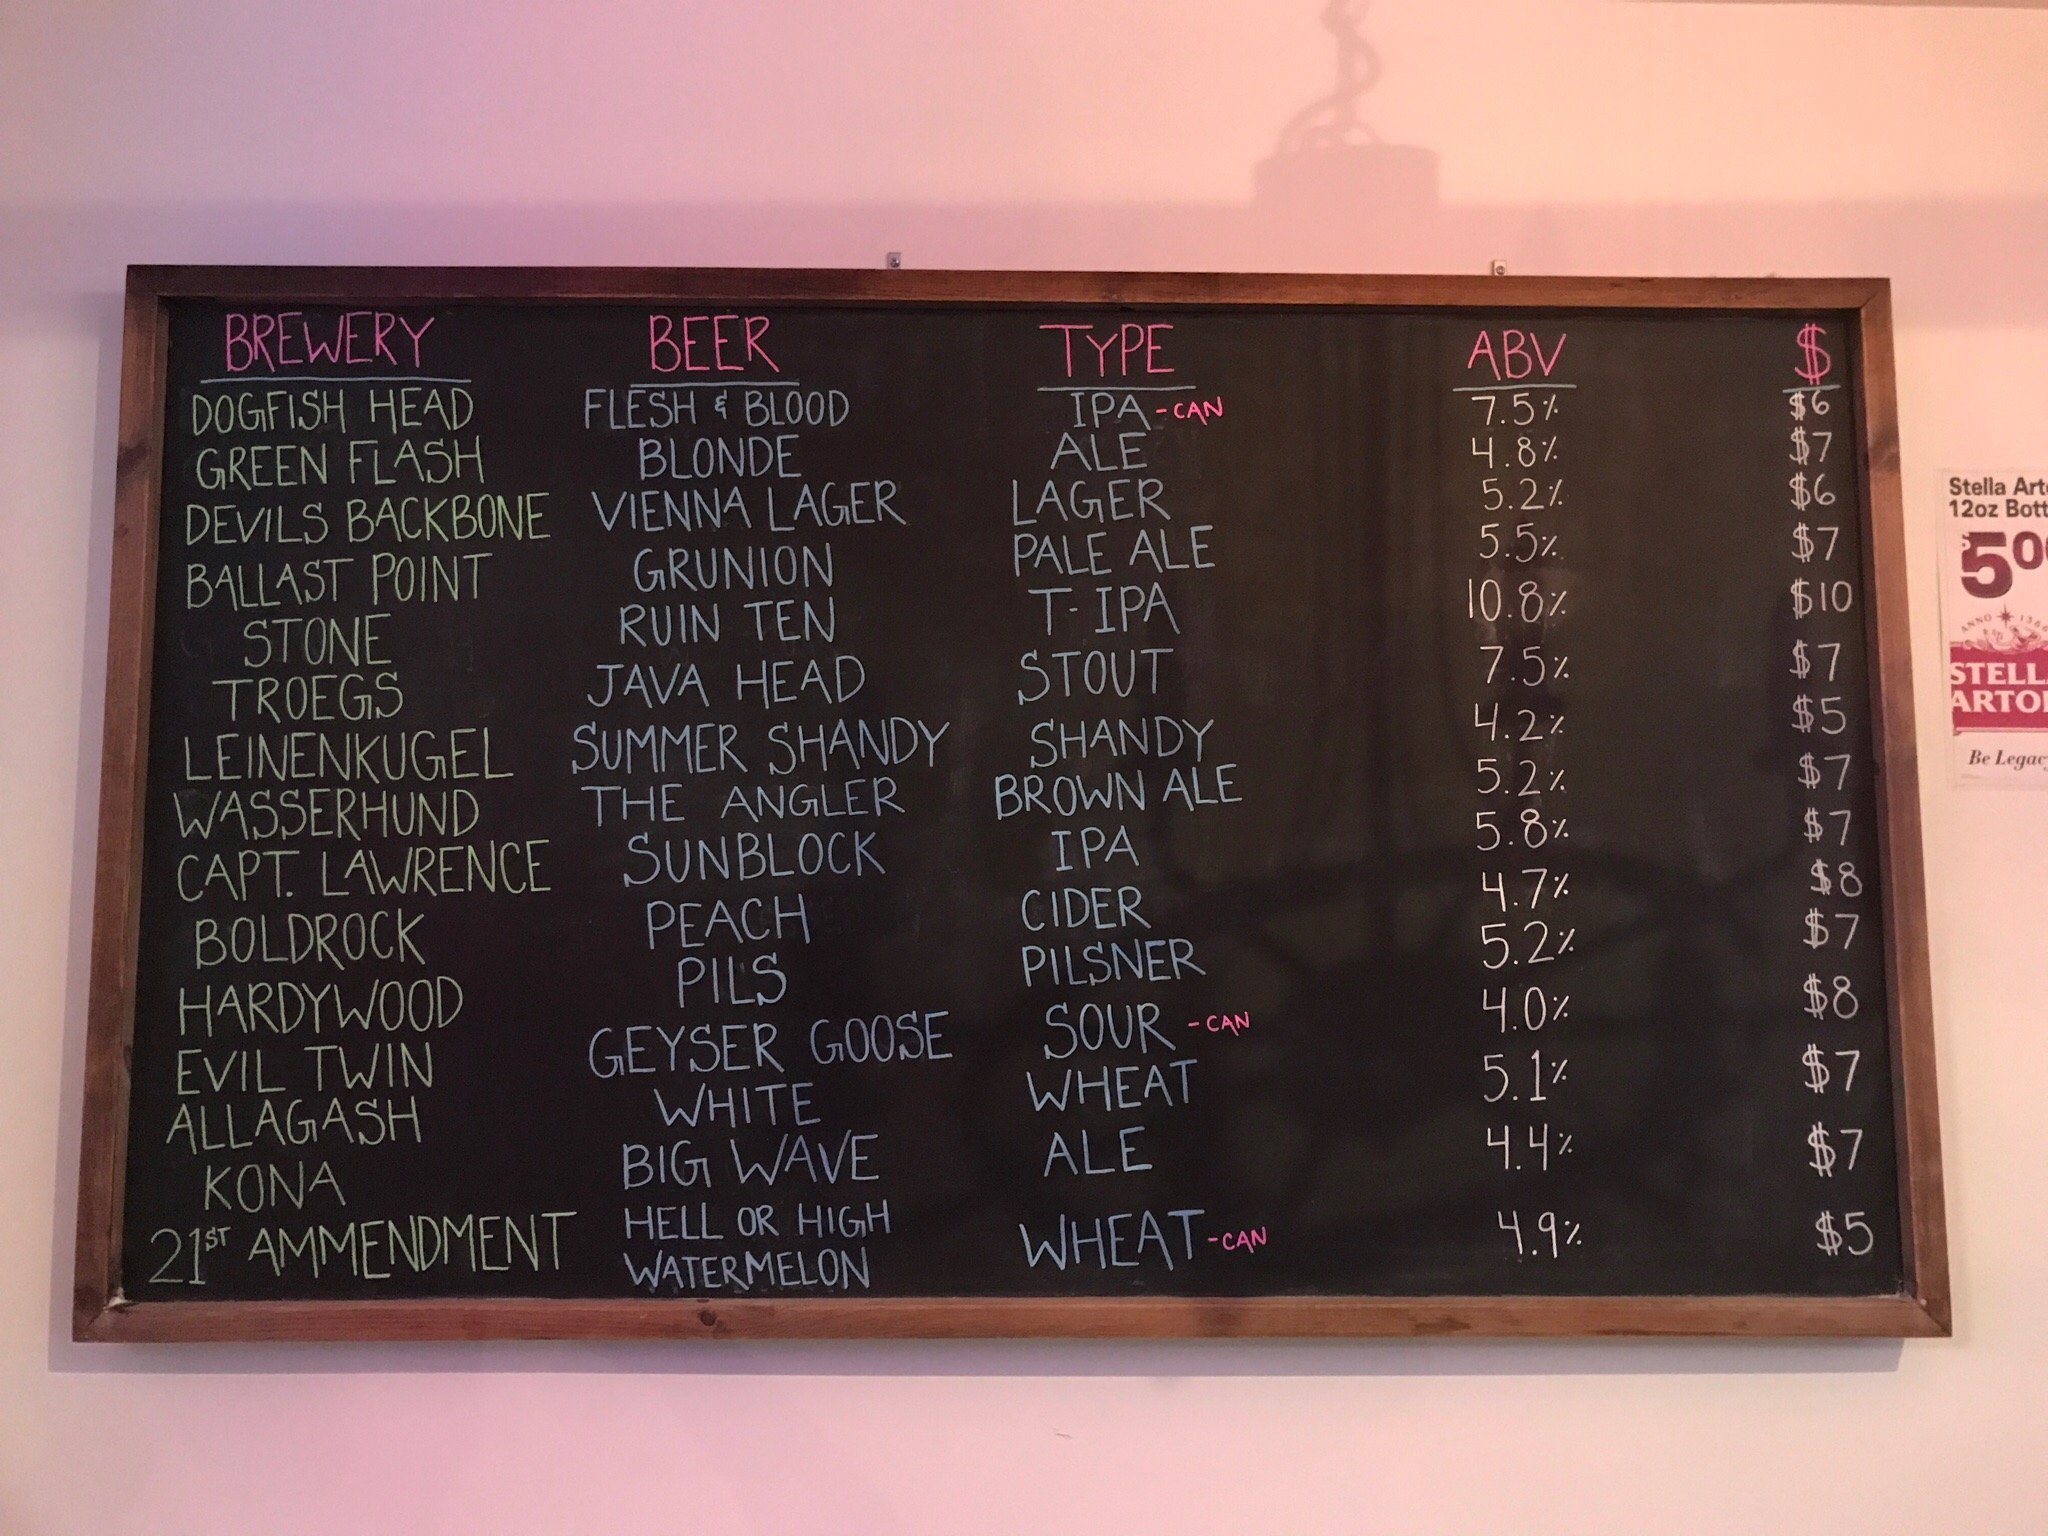 BREWERY BEER TYPE ABV $
DOGFISH HEAD FLESH & BLOOD IPA -CAN 7.5% $6
GREEN FLASH BLONDE ALE 4.8% $7
DEVILS BACKBONE VIENNA LAGER LAGER 5.2% $6
BALLAST POINT GRUNION PALE ALE 5.5% $7
STONE RUIN TEN T-IPA 10.8% $10
TROEGS JAVA HEAD STOUT 7.5% $7
LEINENKUGEL SUMMER SHANDY SHANDY 4.2% $5
WASSERHUND THE ANGLER BROWN ALE 5.2% $7
CAPT. LAWRENCE SUNBLOCK IPA 5.8% $7
BOLDROCK PEACH CIDER 4.7% $8
HARDYWOOD PILS PILSNER 5.2% $7
EVIL TWIN GEYSER GOOSE SOUR -CAN 4.0% $8
ALLAGASH WHITE WHEAT 5.1% $7
KONA BIG WAVE ALE 4.4% $7
21ST AMMENDMENT HELL OR HIGH WATERMELON WHEAT -CAN 4.9% $5
Stella Arto
12oz Bott
$5.00
ANNO 1366
STELLA
ARTOI
Be Legacy